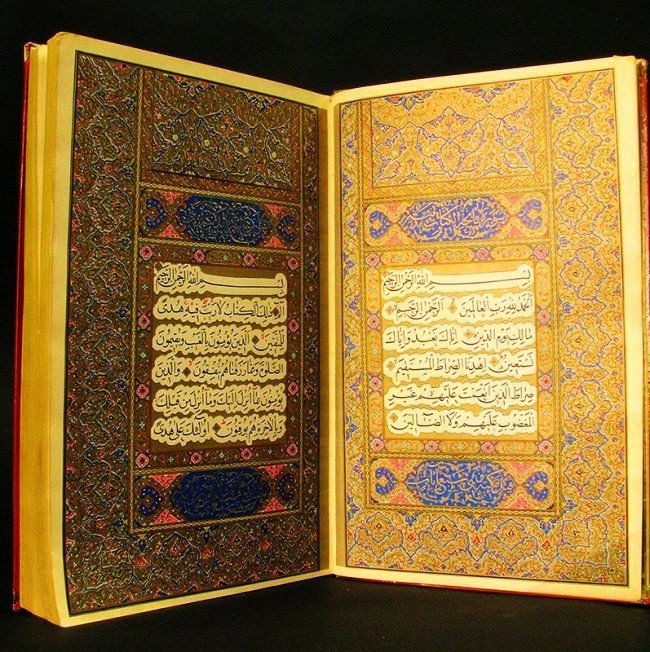 سورة فاتحة الكتاب
بِسْمِ اللهِ الرَّحْمٰنِ الرَّحِيمِ
اَلْحَمْدُ لِلّٰهِ رَبِّ الْعَالَمِينَ الرَّحْمٰنِ الرَّحِيمِ
مَالِكِ يَوْمِ الدِّينِ اِيَّاكَ نَعْبُدُ وَاِيَّاكَ
نَسْتَعِينُ اِهْدِنَا الصِّرَاطَ الْمُسْتَقِيمَ
صِرَاطَ الَّذِينَ اَنْعَمْتَ عَلَيْهِمْ غَيْرِ
الْمَغْضُوبِ عَلَيْهِمْ وَلَا الضَّآلِّينَ
بِسْمِ اللهِ الرَّحْمٰنِ الرَّحِيمِ
الٓمٓ ذٰلِكَ الْكِتَابُ لَا رَيْبَ فِيهِ هُدًى
لِلْمُتَّقِينَ الَّذِينَ يُؤْمِنُونَ بِالْغَيْبِ وَيُقِيمُونَ
الصَّلٰوةَ وَمِمَّا رَزَقْنَاهُمْ يُنْفِقُونَ وَالَّذِينَ
يُؤْمِنُونَ بِمَا اُنْزِلَ اِلَيْكَ وَمَا اُنْزِلَ مِنْ قَبْلِكَ
وَبِالْاٰخِرَةِ هُمْ يُوقِنُونَ اُولٰٓئِكَ عَلٰى هُدًى